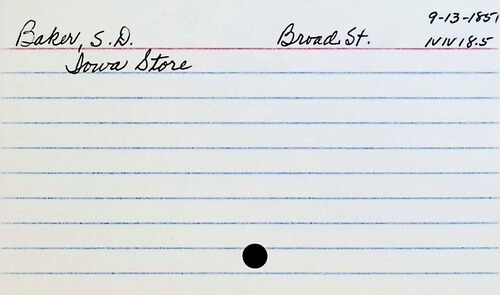 Baker, S. D. Broad St. 9-13-1851
Iowa Store IVIV18.5